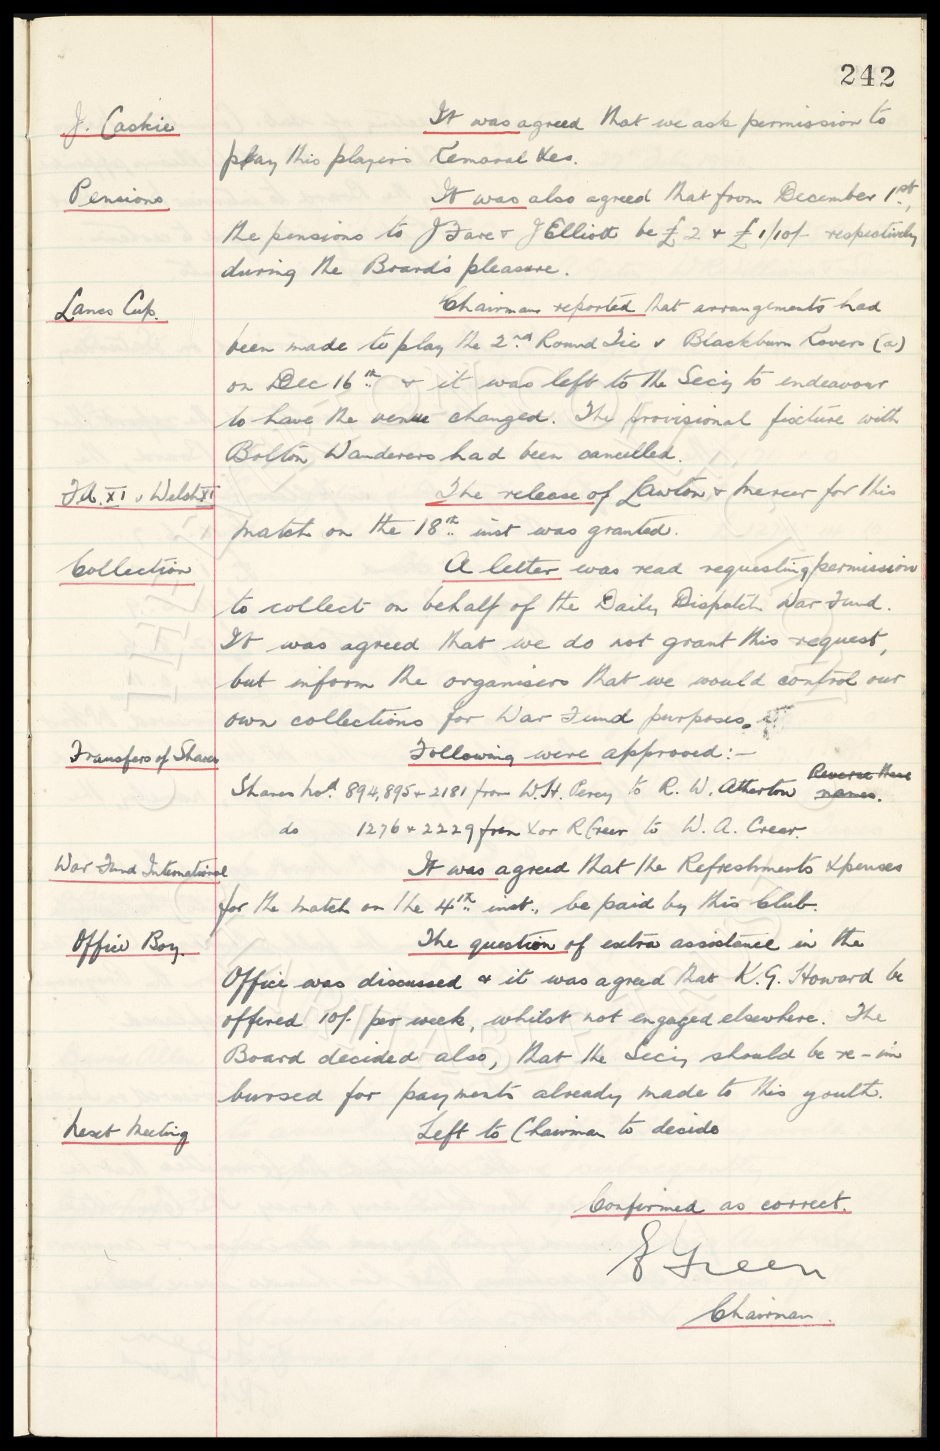 242
J. Caskie It was agreed that we ask permission to
play this player's Removal Xes.
Pensions It was also agreed that from December 1st,
the pensions to J Fare & J Elliott be £2 & £1/10/- respectively
during the Board's pleasure.
Lancs Cup. Chairman reported that arrangements had
been made to play the 2nd Round Tie v Blackburn Rovers (a)
on Dec 16th & it was left to the Secy to endeavour
to have the venue changed. The provisional fixture with
Bolton Wanderers had been cancelled.
F.A. XI v Welsh XI The release of Lawton & Mercer for this
match on the 18th inst was granted.
Collection A letter was read requesting permission
to collect on behalf of the Daily Dispatch War Fund.
It was agreed that we do not grant this request,
but inform the organisers that we would control our
own collections for War Fund purposes.
Transfers of Shares Following were approved:-
Shares nos. 894,895 & 2181 from W.H. Percy to R. W. Atherton Reverse these
names.
do 1276 & 2229 from Xor R Creer to W. A. Creer.
War Fund International It was agreed that the Refreshments Xpenses
for the match on the 4th inst., be paid by this Club.
Office Boy. The question of extra assistance in the
Office was discussed & it was agreed that K.G. Howard be
offered 10/- per week, whilst not engaged elsewhere. The
Board decided also, that the Secy should be re-im
bursed for payments already made to this youth.
Next Meeting Left to Chairman to decide
Confirmed as correct.
E Green
Chairman.